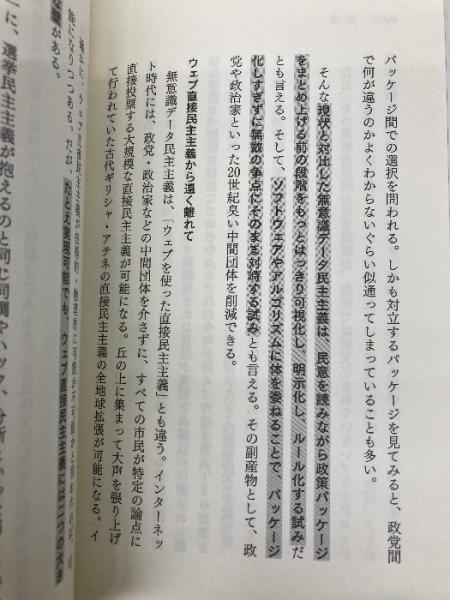 パッケージ間での選択を問われる。しかも対立するパッケージを見てみると、政党間
で何が違うのかよくわからないぐらい似通ってしまっていることも多い。
そんな現状と対比した無意識データ民主主義は、民意を読みながら政策パッケージ
をまとめ上げる前の段階をもっとはっきり可視化し、明示化し、ルール化する試みだ
とも言える。そして、ソフトウェアやアルゴリズムに体を委ねることで、パッケージ
化しすぎずに無数の争点にそのまま対峙する試みとも言える。その副産物として、政
党や政治家といった20世紀臭い中間団体を削減できる。
ウェブ直接民主主義から遠く離れて
無意識データ民主主義は、「ウェブを使った直接民主主義」とも違う。インターネッ
ト時代には、政党・政治家などの中間団体を介さずに、すべての市民が特定の論点に
直接投票する大規模な直接民主主義が可能になる。丘の上に集まって大声を張り上げ
て行われていた古代ギリシャ・アテネの直接民主主義の全地球拡張が可能になる。イ
能になりつつある。だが、たとえ実現可能でも、ウェブ直接民主主義には二つの大き
な壁がある。
一に、選挙民主主義が抱えるのと同じ同調やハック、分断